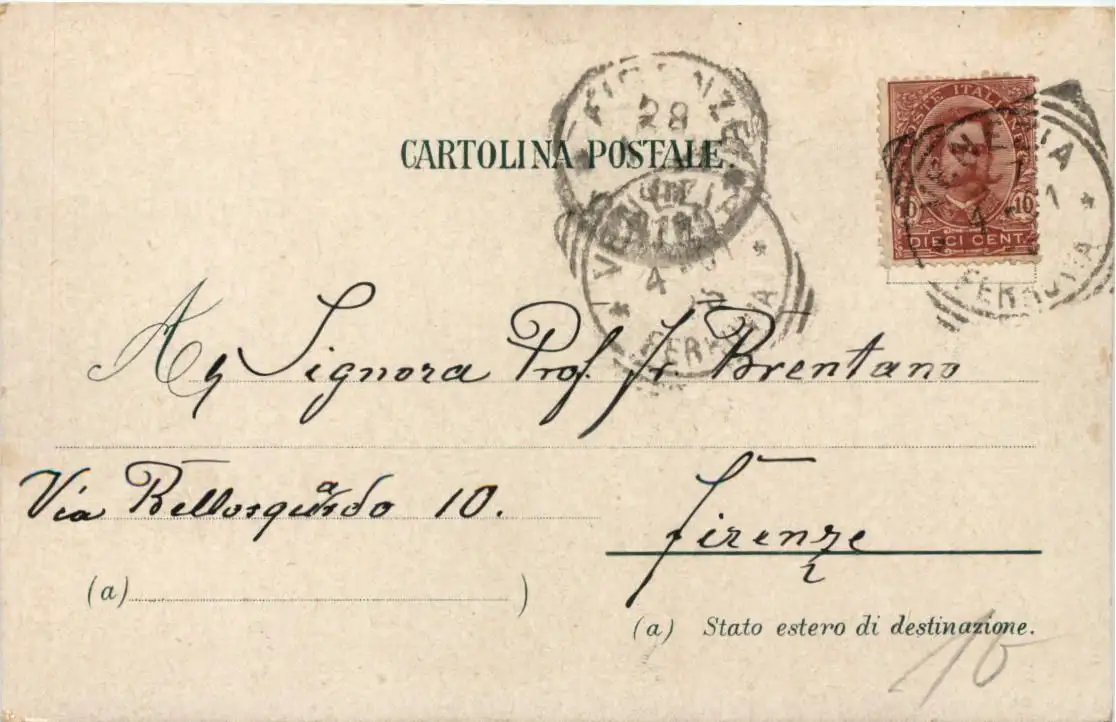 CARTOLINA POSTALE
FIRENZE
28
VENEZIA
4
FERROVIA
POSTE ITALIANE
10 10
DIECI CENT.
VENEZIA
4
FERROVIA
Signora Prof. Fr. Brentano
Via Bellosguardo 10.
Firenze
(a) )
(a) Stato estero di destinazione.